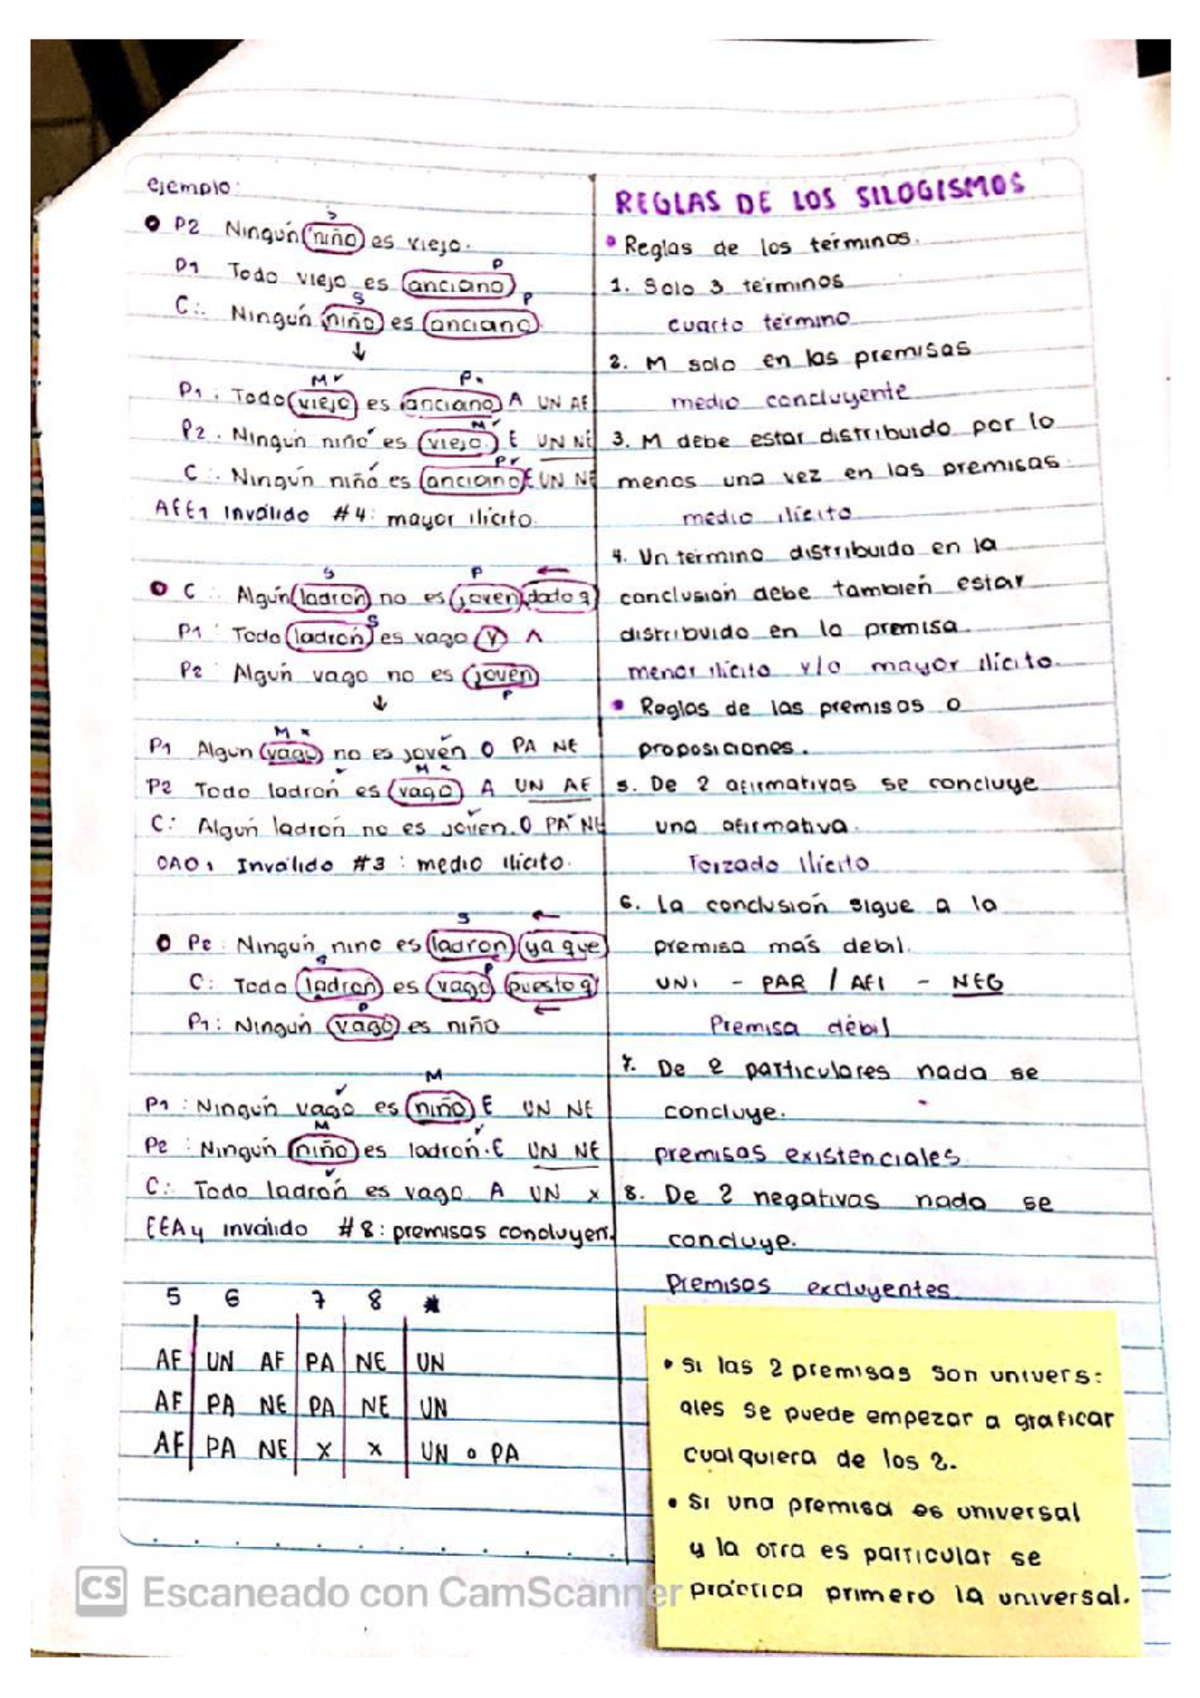 ejemplo:
S
P2 Ningún niño es viejo.
P
P1 Todo viejo es anciano
S P
C∴ Ningún niño es anciano.
↓
M✓ P×
P1: Todo viejo es anciano A UN AF
M✓
P2. Ningún niño es viejo. E UN NE
P✓
C∴ Ningún niño es anciano E UN NE
AEE1 Inválido #4: mayor ilícito.
S P ←
C∴ Algún ladrón no es joven, dado q
S
P1: Todo ladrón es vago y ^
P2: Algún vago no es joven
P
↓
M×
P1 Algun vago no es joven O PA NE
✓ M×
P2 Todo ladrón es vago A UN AF
C: Algún ladrón no es joven. O PA NE
OAO1 Inválido #3: medio ilícito.
S ←
P2: Ningún nino es ladron ya que
S P
C: Todo ladron es vago puesto q
P ←
P1: Ningun vago es niño
✓ M
P1: Ningún vago es niño E UN NE
M ✓
P2: Ningún niño es ladrón. E UN NE
✓
C∴ Todo ladrón es vago A UN x
EEA4 inválido #8: premisas concluyen.
5 6 7 8 *
AF UN AF PA NE UN
AF PA NE PA NE UN
AF PA NE x x UN o PA
REGLAS DE LOS SILOGISMOS
• Reglas de los términos.
1. Solo 3 términos
cuarto término
2. M solo en las premisas
medio concluyente
3. M debe estar distribuido por lo
menos una vez en las premisas.
medio ilícito
4. Un término distribuido en la
conclusión debe también estar
distribuido en la premisa.
menor ilícito y/o mayor ilícito.
• Reglas de las premisas o
proposiciones.
5. De 2 afirmativas se concluye
una afirmativa.
Forzado Ilícito
6. La conclusión sigue a la
premisa más debil.
UNI - PAR / AFI - NEG
Premisa débil
7. De 2 particulares nada se
concluye.
premisas existenciales.
8. De 2 negativas nada se
concluye.
Premisas excluyentes
• Si las 2 premisas son univers:
ales se puede empezar a graficar
cualquiera de los 2.
• Si una premisa es universal
y la otra es particular se
práctica primero la universal.
CS Escaneado con CamScanner